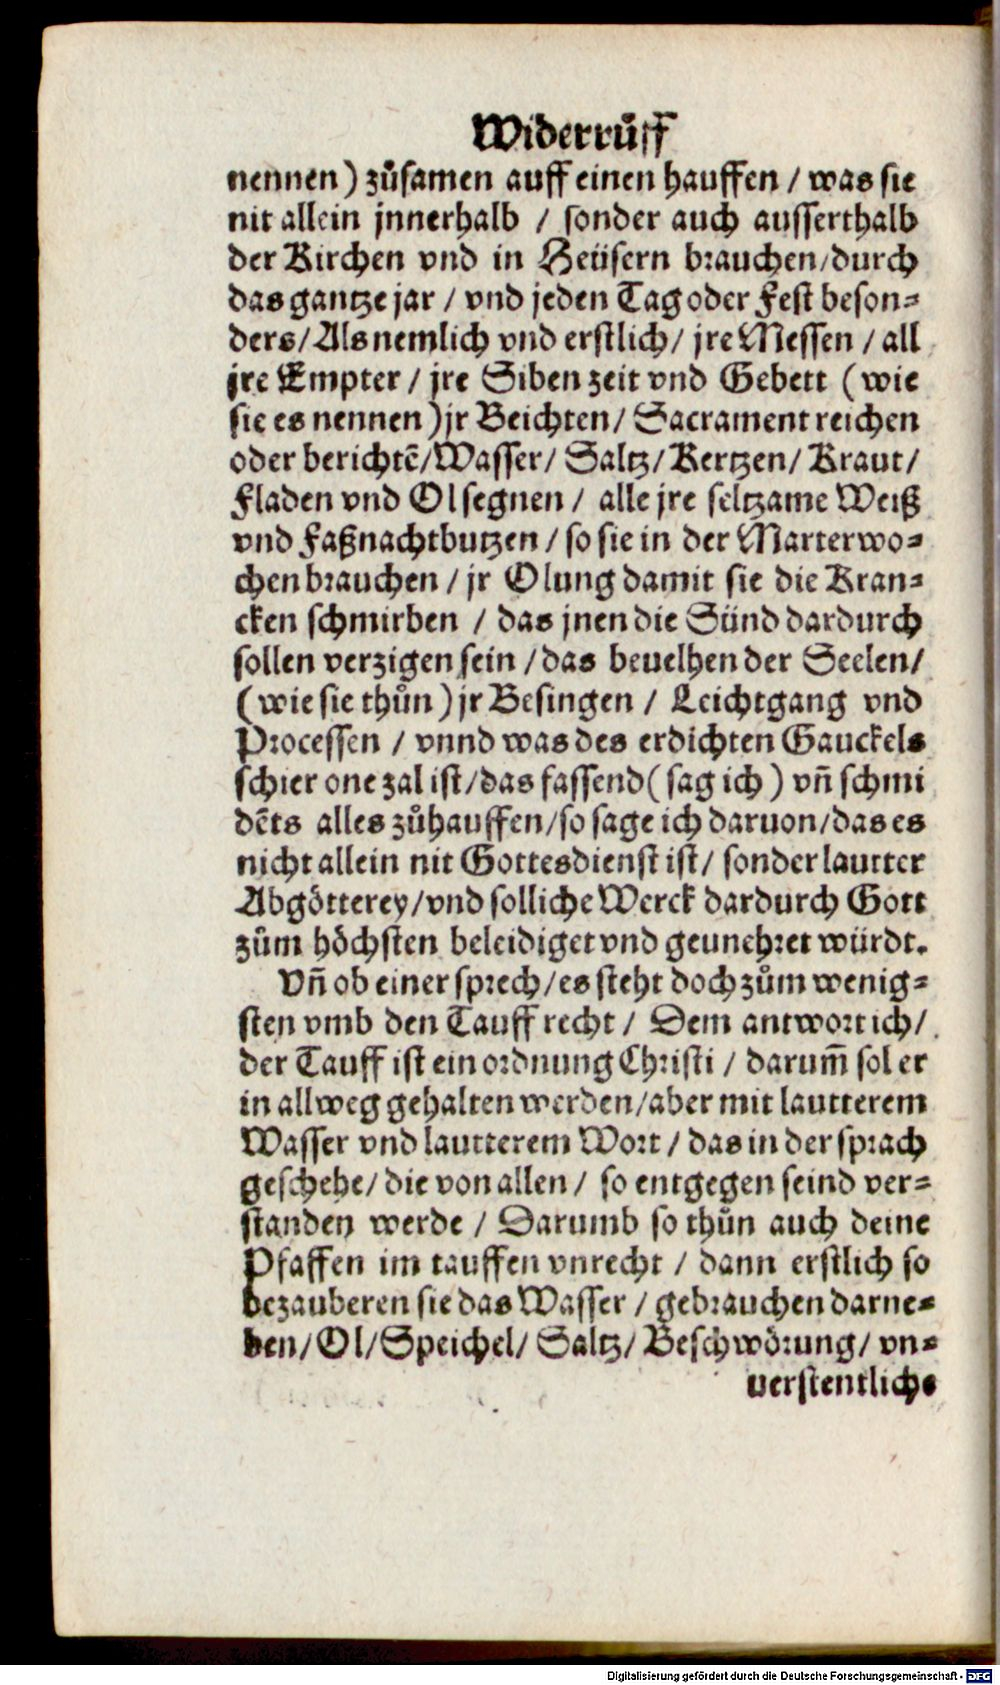 Widerrůff
nennen) zůsamen auff einen hauffen / was sie
nit allein jnnerhalb / sonder auch ausserthalb
der Kirchen vnd in Heüsern brauchen/durch
das gantze jar / vnd jeden Tag oder Fest beson-
ders/Als nemlich vnd erstlich/ jre Messen / all
jre Empter / jre Siben zeit vnd Gebett (wie
sie es nennen)jr Beichten/ Sacrament reichen
oder berichtē/Wasser/ Saltz/ Kertzen/ Kraut/
Fladen vnd Ol segnen / alle jre seltzame Weiß
vnd Faßnachtbutzen / so sie in der Marterwo-
chen brauchen / jr Olung damit sie die Kran-
cken schmirben / das jnen die Sünd dardurch
sollen verzigen sein / das beuelhen der Seelen/
(wie sie thůn) jr Besingen / Leichtgang vnd
Processen / vnnd was des erdichten Gauckels
schier one zal ist/das fassend(sag ich) vn̄ schmi
dēts alles zůhauffen/so sage ich daruon/das es
nicht allein nit Gottesdienst ist/ sonder lautter
Abgötterey/vnd solliche Werck dardurch Gott
zům höchsten beleidiget vnd geunehret würdt.
Vn̄ ob einer sprech/es steht doch zům wenig-
sten vmb den Tauff recht / Dem antwort ich/
der Tauff ist ein ordnung Christi / darum̄ sol er
in allweg gehalten werden/aber mit lautterem
Wasser vnd lautterem Wort / das in der sprach
geschehe/ die von allen / so entgegen seind ver-
standen werde / Darumb so thůn auch deine
Pfaffen im tauffen vnrecht / dann erstlich so
bezauberen sie das Wasser / gebrauchen darne-
ben/ Ol/ Speichel/ Saltz/ Beschwörung/ vn-
uerstentliche
Digitalisierung gefördert durch die Deutsche Forschungsgemeinschaft - DFG